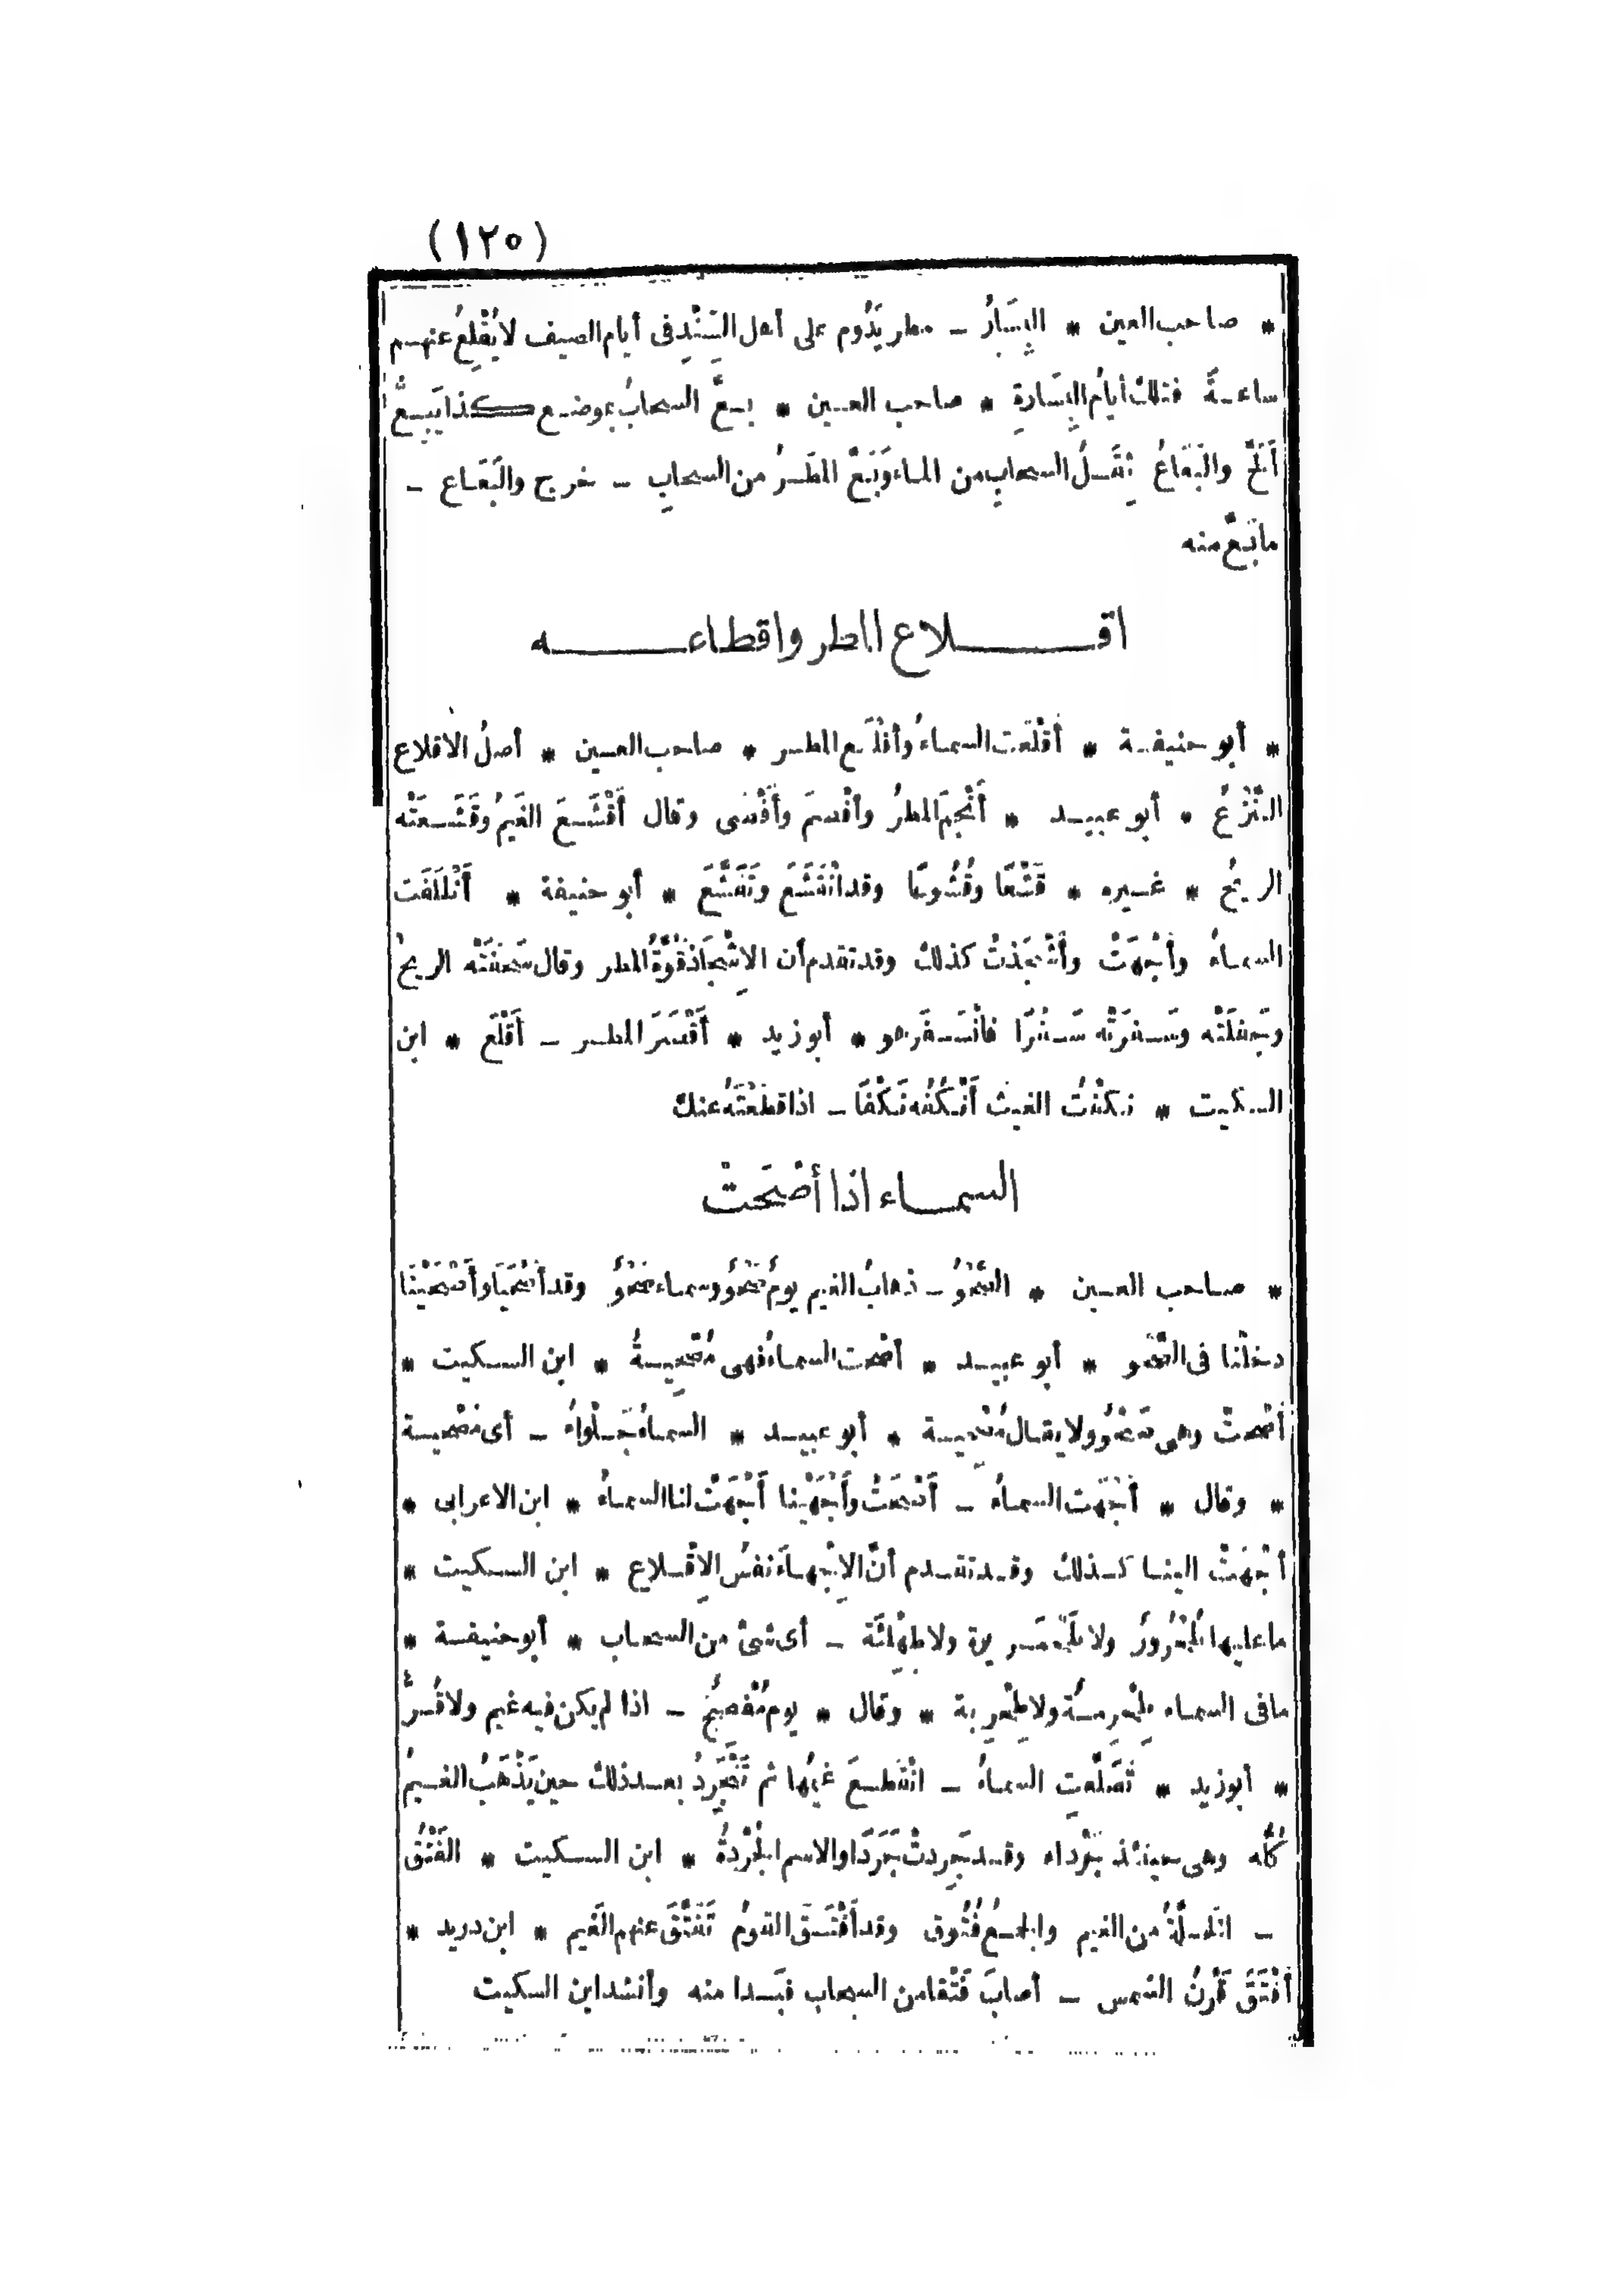 (١٢٥)
* صاحب العين * البِسَارُ ـ مطر يَدُوم على أهل السِّنْدِ فى أيام الصيف لا يُقْلِعُ عنهم
ساعةً فتلك أيامُ البِسَارةِ * صاحب العين * بعَّ السحابُ بموضع كذا يَبِعُّ
أَلَحَّ والبَعَاعُ ثِقَلُ السحابِ من الماء وَبَعَّ المطَرُ من السحابِ ـ خرج والبَعَاع ـ
ما بَعَّ منه
اقلاع المطر واقطاعه
* أبو حنيفة * أقْلَعَت السماءُ وأقْلَع المطر * صاحب العين * أصلُ الاقلاع
النَّزْعُ * أبو عبيد * أَنْجَمَ المطرُ وأفْصمَ وأَفْصَى وقال أَقْشَعَ الغَيمُ وقَشَعَتْه
الريحُ * غيره * قَشْعًا وقُشُوعًا وقد انْقَشَعَ وتَقَشَّعَ * أبو حنيفة *
السماءُ وأَجْهَتْ وأَثْجَذتْ كذلك وقد تقدم أن الاِثْجَاذ قُوَّةُ المطر وقال الريحُ
وسَفَرَتْه سَفْرًا فانْسَفَر هو * أبو زيد * أَقْصَرَ المطر ـ أَقْلَعَ * ابن
السكيت * نكَفْتُ الغيث أَنْكُفُه نَكْفًا ـ اذا قطَعْتَهُ عنك
السماء اذا أصْحَتْ
* صاحب العين * الصَّحْوُ ـ ذهابُ الغيم يومٌ صَحْوٌ وسماء صَحْوٌ وقد أَصْحَيَا وأَصْحَيْنَا
دخلْنا فى الصَّحْو * أبو عبيد * أصْحت السماءُ فهى مُصْحِيةٌ * ابن السكيت *
أَصْحتْ وهى صَحْوٌ ولا يقال مُصْحِية * أبو عبيد * السماءُ جَلْواءُ ـ أى مُصْحية
* وقال * أَجْهَت السماءُ ـ أَصْحَتْ وأَجْهَيْنا أَجْهَتْ لنا السماءُ * ابن الاعرابى *
أَجْهَتْ الينا كذلك وقد تقدم أنَّ الاِجْهاءَ نفسُ الاِقْلاع * ابن السكيت *
ما عليها ولا ولا طِهْلِئَة ـ أى شئ من السحاب * أبو حنيفة *
مافى السماء طِحْرِمَةٌ ولا طِحْرِبة * وقال * يوم مُفْصِحٌ ـ اذا لم يكن فيه غيم ولا قُرٌّ
* أبو زيد * تَقَلَّعت السماءُ ـ انْقَطعَ غيمُها ثم تَنْجَرِدُ بعد ذلك حين يَذْهَبُ الغيمُ
كُلُّه وهى حينئذ جَرْداء وقد جَرِدتْ جَرَدًا والاسم الجُرْدةُ * ابن السكيت * الفَتْقُ
ـ الخَلَّةُ من الغيم والجمعُ فُتُوق وقد أَفْتَقَ القومُ تَفَتَّقَ عنهم الغَيم * ابن دريد *
أَفْتَقَ قَرْنُ الشمس ـ أصابَ فَتْقا من السحاب فبَدا منه وأنشد ابن السكيت